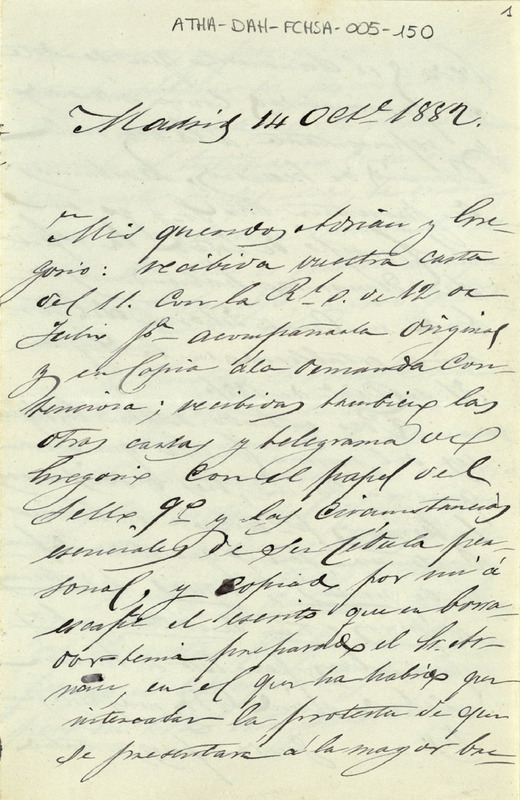 1
ATHA-DAH-FCHSA-005-150
Madrid 14 Octe 1882.
Mis queridos Adrian y Gre-
gorio: recibida vuestra carta
del 11. con la Rl o. de 12 de
Julio pa acompañarla original
y en copia a la demanda con-
tenciosa; recibidas tambien las
otras cartas y telegrama de
Gregorio con el papel del
Sello 9º y las circunstancias
esenciales de su Cédula per-
sonal, y copiado por mi á
escape el escrito que en borra-
dor tenia preparado el Sr. Ar-
naiz, en el que ha habido que
intercalar la protesta de que
se presentará á la mayor bre-